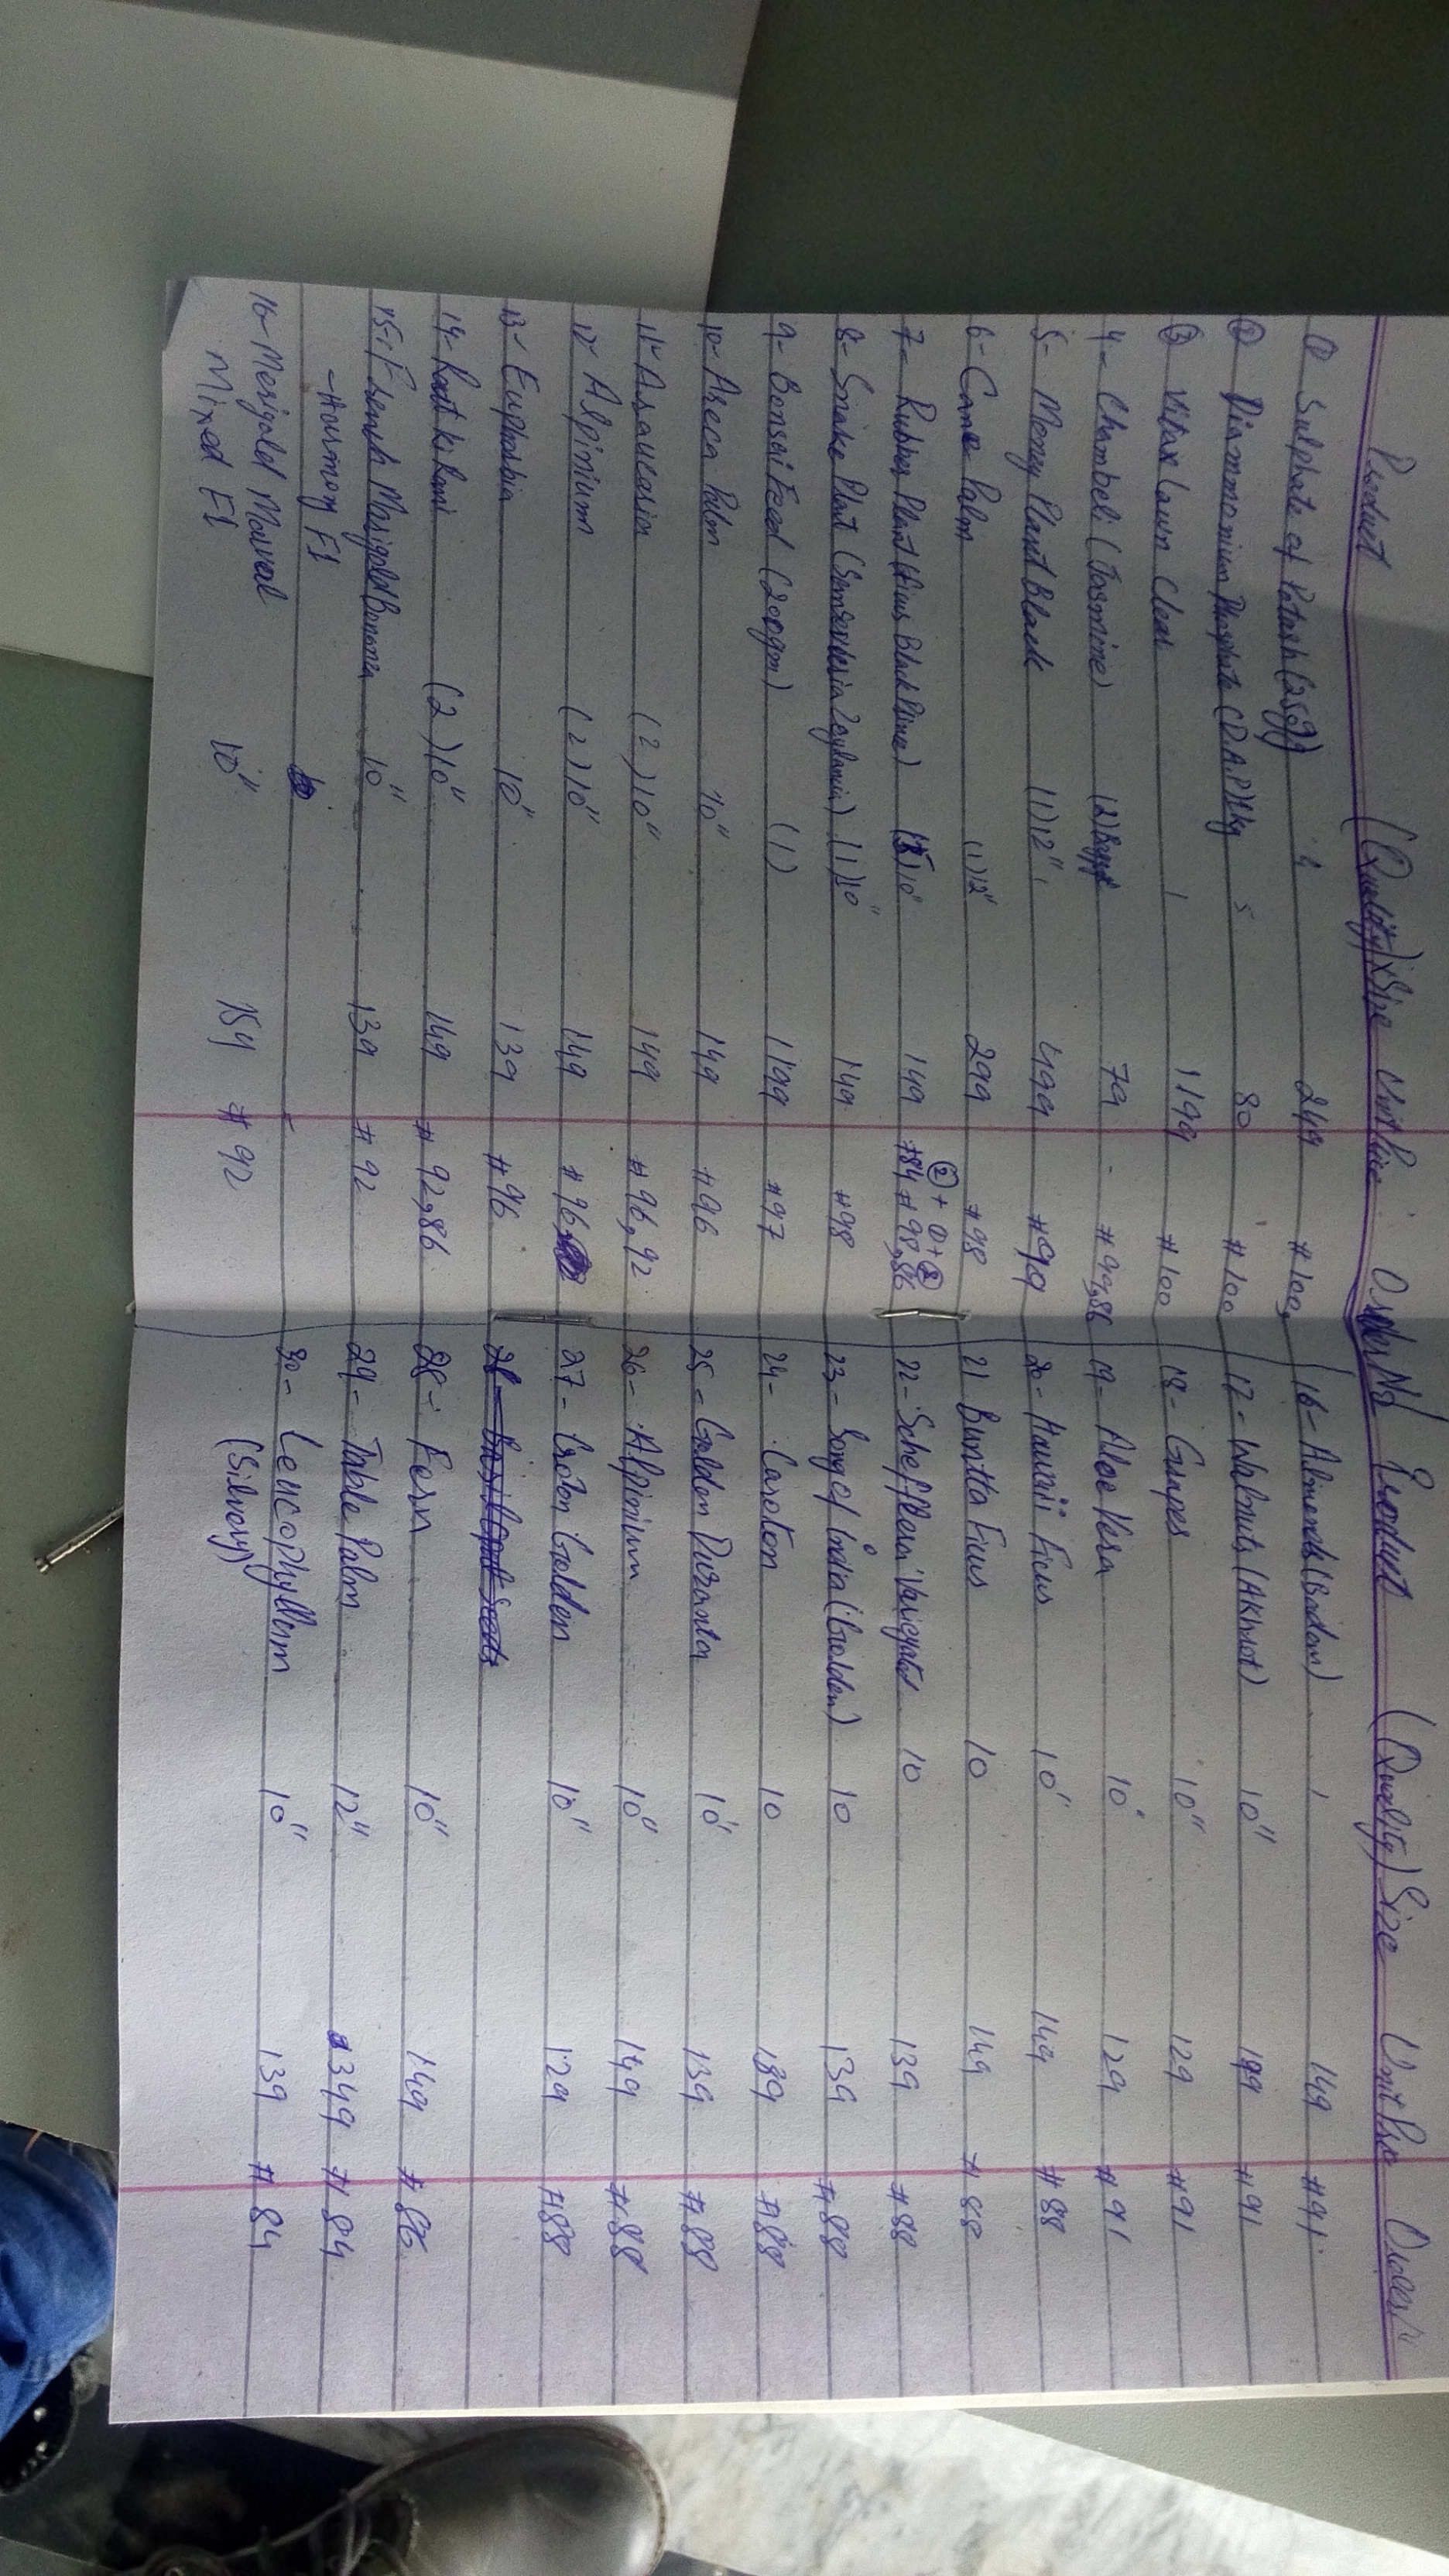 Product (Quality) x Size Unit Price Order No
① Sulphate of Potash (25g) 4 249 #100,
② Diammonium Phosphate (D.A.P) 1kg 5 80 #100
③ Vitax Lawn Clear 1 1199 #100
4- Chambeli (Jasmine) (2) 79 #99,86
5- Money Plant Black (1) 12" 499 #99
6- Cane Palm (1) 12" 299 #98
② + ① + ②
7- Rubber Plant (Ficus Black Prince) 10" 149 #84 #98,86
8- Snake Plant (Sanseviesia Zeylanic) (1) 10" 149 #98
9- Bonsai Feed (200gm) (1) 1199 #97
10- Areca Palm 10" 149 #96
11- Araucaria (2) 10" 149 #96,92
12- Alpinium (2) 10" 149 #96,
13- Euphorbia 10" 139 #96
14- Raat ki Rani (2) 10" 149 #92,86
15- French Marigold Bonanza 10" 139 #92
-Harmony F1
16- Merigold Marval 10" 154 #92
Mixed F1
Product (Quality) Size Unit Price Order
16- Almonds (Badam) 1 149 #91
17- Walnuts (AKhrot) 10" 199 #91
18- Grapes 10" 129 #91
19- Aloe Vera 10" 129 #91
20- Hawaii Ficus 10" 149 #88
21 Buntta Ficus 10 149 #88
22- Schefflera Varigated 10 139 #88
23- Song of India (Golden) 10 139 #88
24- Caroton 10 189 #88
25- Golden Duranta 10" 139 #88
26- Alpinium 10" 149 #88
27- Croton Golden 10" 129 #88
28- Fern 10" 149 #86
29- Table Palm 12" 349 #84
30- Leucophyllum 10" 139 #84
(Silvery)